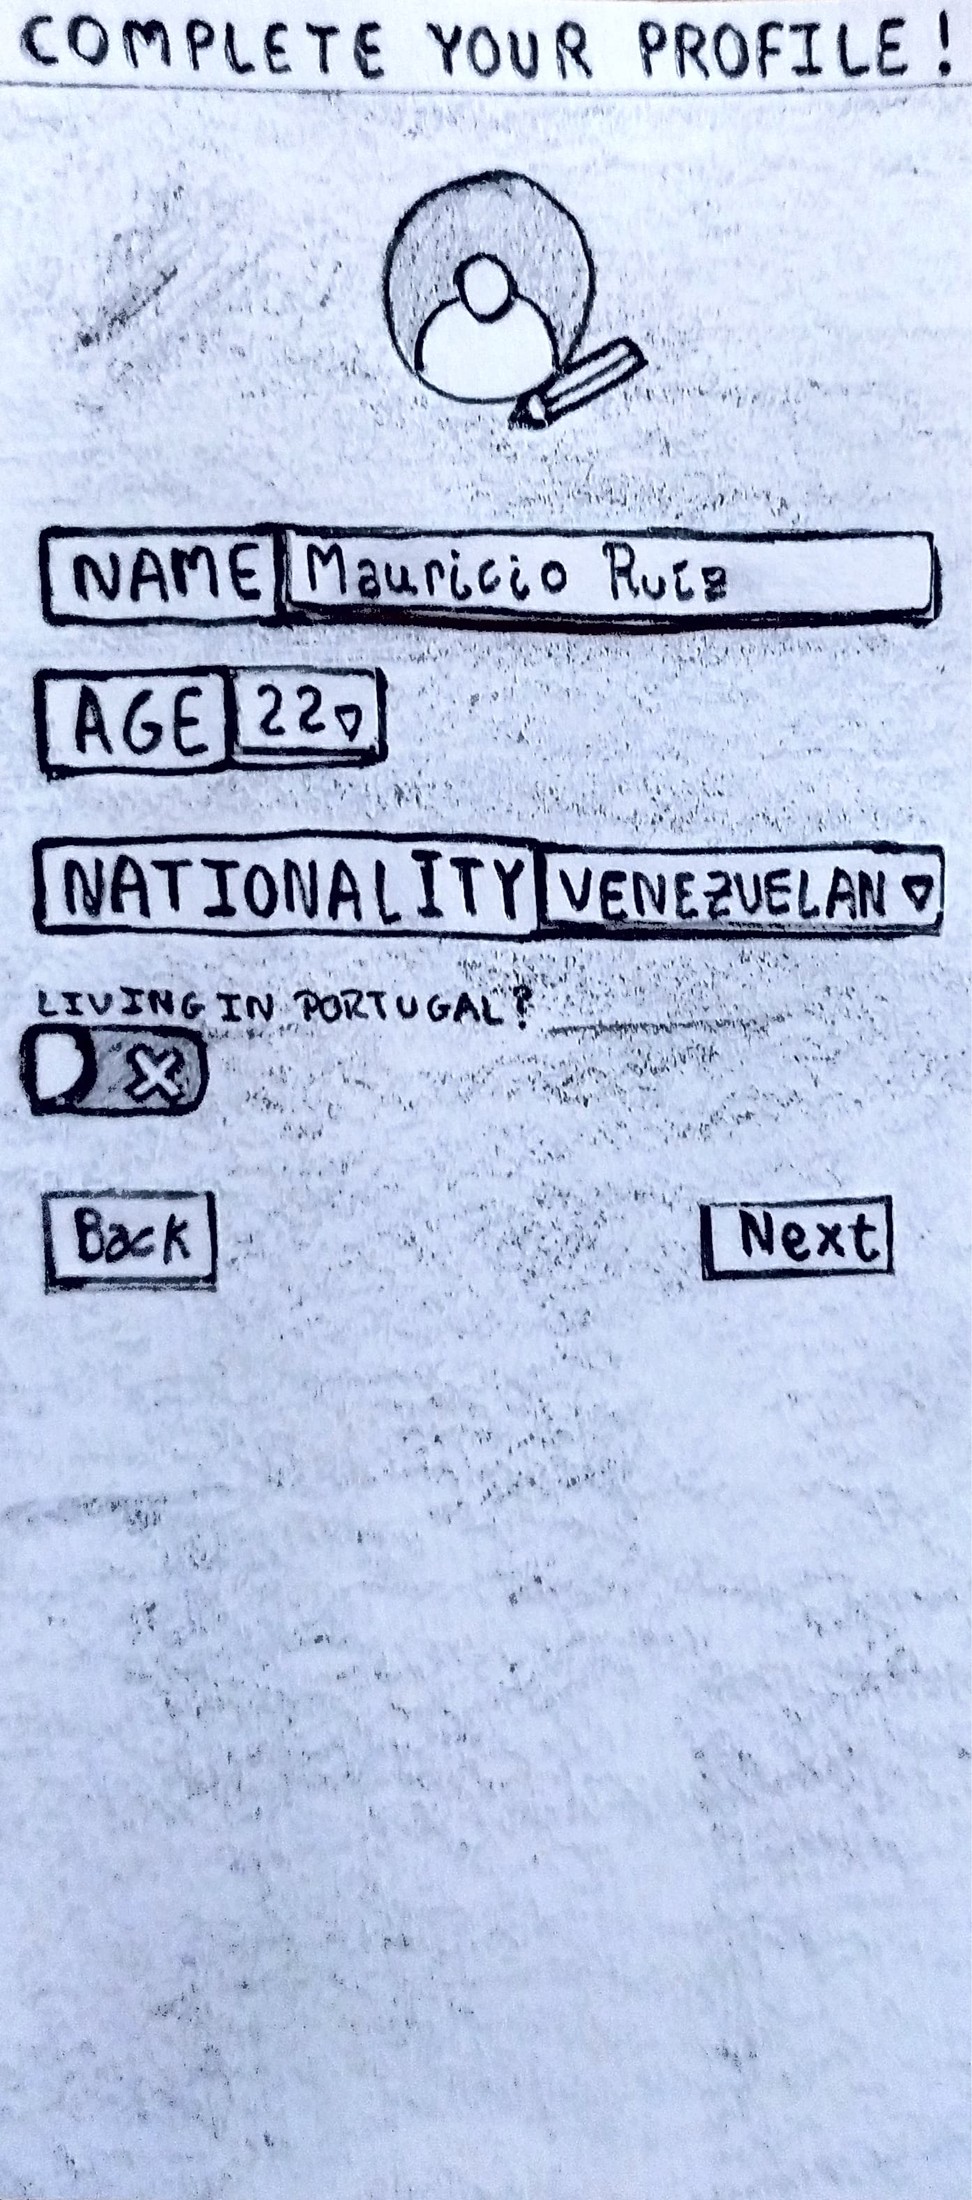 COMPLETE YOUR PROFILE!
NAME Mauricio Ruiz
AGE 22
NATIONALITY VENEZUELAN
LIVING IN PORTUGAL?
Back Next